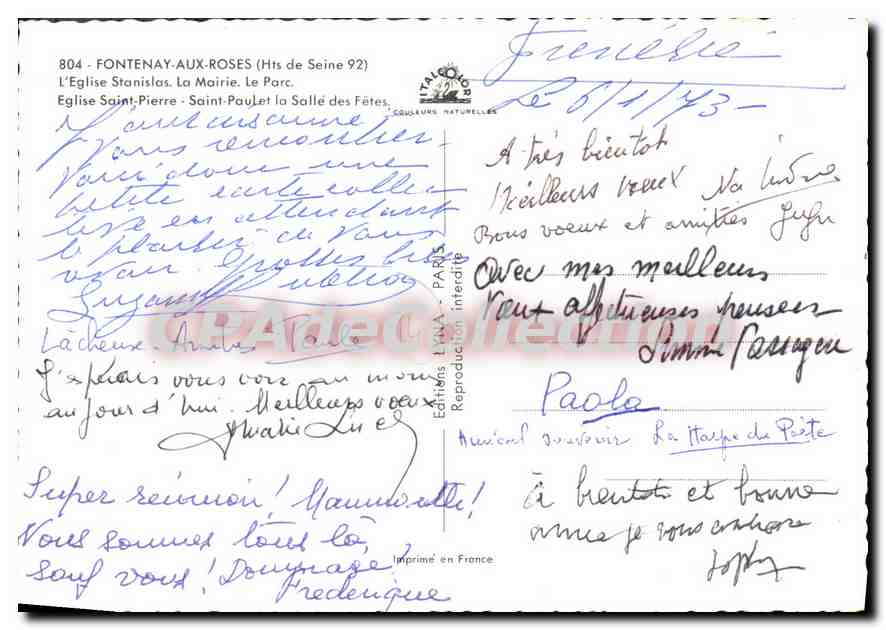 804 - FONTENAY-AUX-ROSES (Hts de Seine 92)
L'Eglise Stanislas. La Mairie. Le Parc.
Eglise Saint-Pierre - Saint-Paul et la Salle des Fêtes.
ITALCOLOR
COULEURS NATURELLES
Le 6/1/73-
vous rencontrer.
Voici donc une
petite carte collec-
tive en attendant
le plaisir de vous
voir. Grosses bises
Suzanne
Lâcheux. Amitiés Paule
J'espérais vous voir au moins
aujourd'hui. Meilleurs voeux
Marie
Super réunion! Mammouth!
Nous sommes tous là,
sauf vous! Dommage!
Frederique
Editions LYNA - PARIS
Reproduction interdite
Imprimé en France
A très bientôt
Meilleurs voeux
Bons voeux et amitiés
Avec mes meilleurs
Voeux affectueuses pensées
Simone
Paola
Amical souvenir La Harpe du Poète
à bientôt et bonne
année je vous embrasse
CPAdeCollection